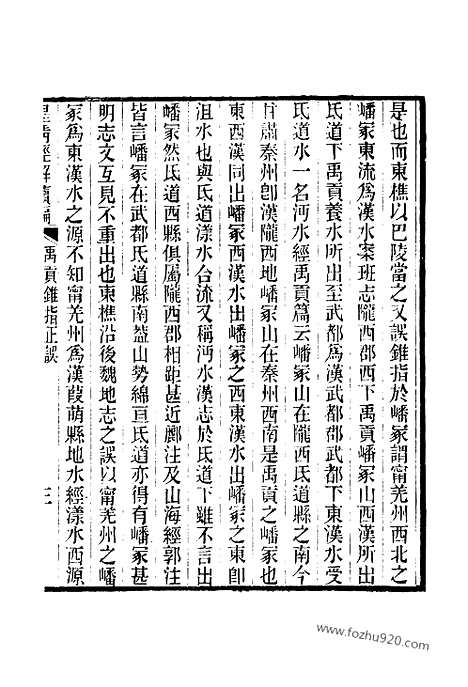 是也而東樵以巴陵當之又誤錐指於嶓冢謂甯羌州西北之
嶓冢東流爲漢水案班志隴西郡西下禹貢嶓冢山西漢所出
氐道下禹貢養水所出至武都爲漢武都郡武都下東漢水受
氐道水一名沔水經禹貢篇云嶓冢山在隴西氐道縣之南今
甘肅秦州卽漢隴西地嶓冢山在秦州西南是禹貢之嶓冢也
東西漢同出嶓冢西漢水出嶓冢之西東漢水出嶓冢之東卽
沮水也與氐道漾水合流又稱沔水漢志於氐道下雖不言出
嶓冢然氐道西縣俱屬隴西郡相距甚近酈注及山海經郭注
皆言嶓冢在武都氐道縣南葢山勢綿亘氐道亦得有嶓冢甚
明志文互見不重出也東樵沿後魏地志之誤以甯羌州之嶓
冢爲東漢水之源不知甯羌州爲漢葭萌縣地水經漾水西源
皇清經解續編 禹貢錐指正誤 三
www.fozhu920.com